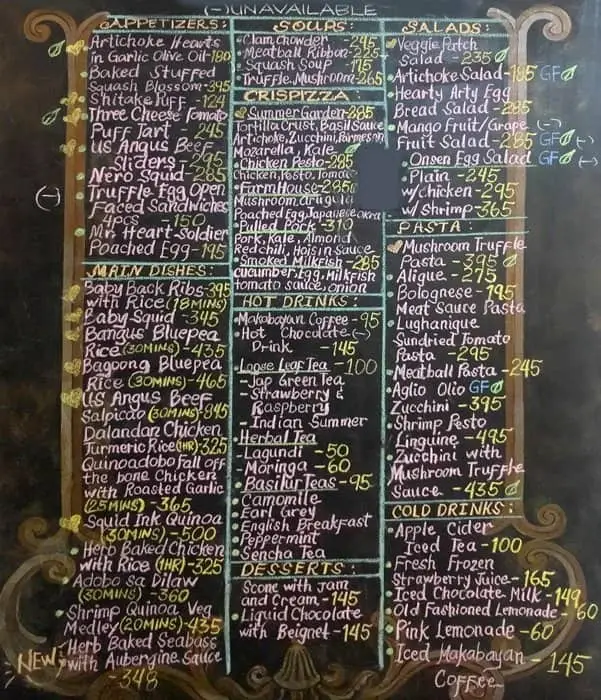 (-)UNAVAILABLE
APPETIZERS:
Artichoke Hearts
in Garlic Olive Oil-180
Baked Stuffed
Squash Blossom-395
Shitake Puff - 124
Three Cheese Tomato
Puff Tart - 245
US Angus Beef
Sliders - 295
Nero Squid - 285
(-) Truffle Egg Open
Faced Sandwiches
4pcs - 150
Mr. Heart-Soldier
Poached Egg-195
MAIN DISHES:
Baby Back Ribs-395
with Rice (18MINS)
Baby Squid - 345
Bangus Bluepea
Rice (30MINS) - 435
Bagoong Bluepea
Rice (30MINS) - 465
US Angus Beef
Salpicao (30MINS)-845
Dalandan Chicken
Turmeric Rice (1HR)-325
Quinoadobo fall off
the bone Chicken
with Roasted Garlic
(25MINS) - 365
Squid Ink Quinoa
(30MINS) - 500
Herb Baked Chicken
with Rice (1HR)-325
Adobo sa Dilaw
(30MINS) - 360
Shrimp Quinoa Veg
Medley (20MINS)-435
Herb Baked Seabass
NEW! with Aubergine Sauce
- 348
SOUPS:
Clam chowder - 245
Meatball Ribbon-225
Squash Soup - 175
Truffle Mushroom-265
CRISPIZZA:
Summer Garden-285
Tortilla Crust, Basil Sauce
Artichoke, Zucchini, Parmesan
Mozarella, Kale
Chicken Pesto-285
Chicken, Pesto, Tomato
FarmHouse-285
Mushroom, arugula
Poached Egg, Japanese okra
Pulled Pork - 310
Pork, Kale, Almond
Red chili, Hoisin sauce
Smoked Milkfish - 285
cucumber, Egg, Milkfish
tomato sauce, onion
HOT DRINKS:
Makabayan Coffee-95
Hot Chocolate (-)
Drink - 145
Loose Leaf Tea - 100
- Jap Green Tea
- Strawberry &
Raspberry
- Indian Summer
Herbal Tea
- Lagundi - 50
- Moringa - 60
Basilur Teas - 95
Camomile
Earl Grey
English Breakfast
Peppermint
Sencha Tea
DESSERTS:
Scone with Jam
and Cream - 145
Liquid Chocolate
with Beignet - 145
SALADS:
Veggie Patch
Salad - 235
Artichoke Salad-185 GF
Hearty Arty Egg
Bread Salad - 285
Mango Fruit/Grape (-)
Fruit Salad - 285 GF (-)
Onsen Egg Salad GF (-)
Plain - 245
w/chicken - 295
w/ Shrimp - 365
PASTA:
Mushroom Truffle
Pasta - 395
Aligue - 275
Bolognese - 195
Meat Sauce Pasta
Lughanique
Sundried Tomato
Pasta - 295
Meatball Pasta - 245
Aglio Olio GF
Zucchini - 395
Shrimp Pesto
Linguine - 495
Zucchini with
Mushroom Truffle
Sauce - 435
COLD DRINKS:
Apple Cider
Iced Tea - 100
Fresh Frozen
Strawberry Juice - 165
Iced Chocolate Milk - 149
Old Fashioned Lemonade - 60
Pink Lemonade - 60
Iced Makabayan - 145
Coffee